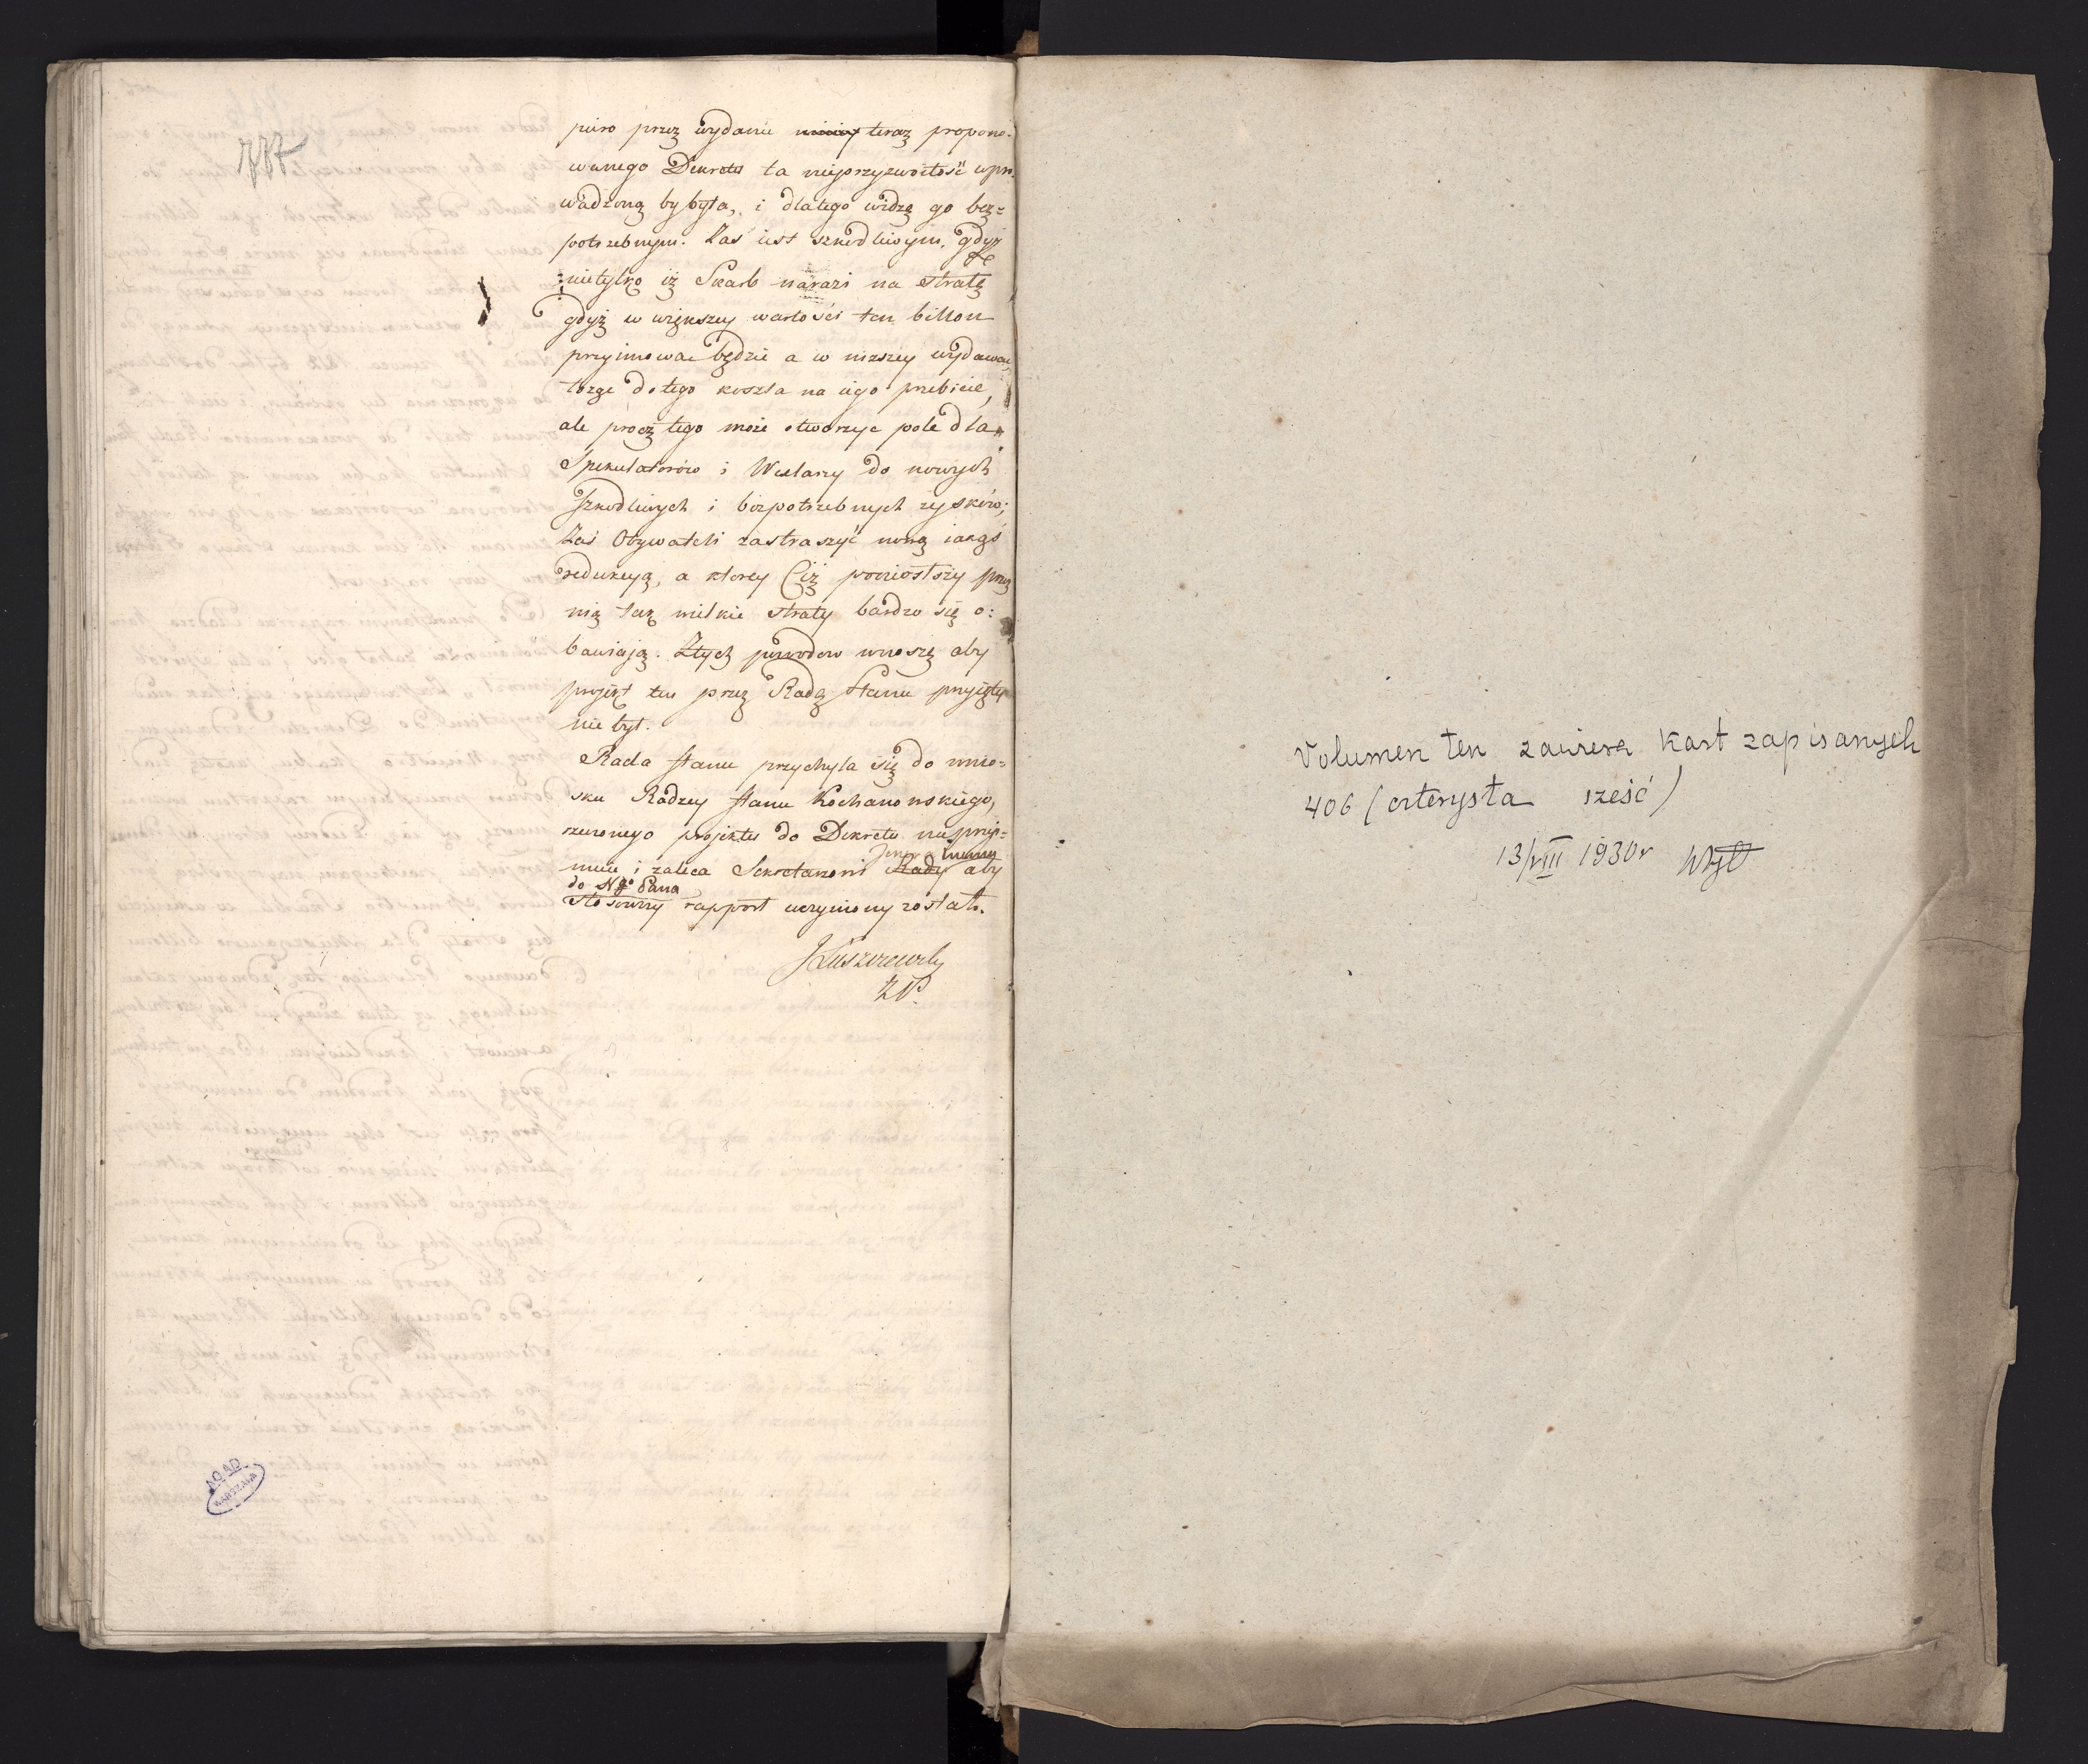 piero przez wydanie teraz propono-
wanego Dekretu ta nieprzyzwoitość wpro-
wadzoną by była, i dlatego widzę go bez=
potrzebnym. Zaś iest szkodliwym, gdyż
nietylko iż Skarb narazi na stratę
gdyż w większey wartości ten billon
przyimować będzie a w niższey wydawać
łożąc do tego koszta na iego przebicie,
ale prócz tego może otworzyć pole dla
Spekulatorów i Wexlarzy do nowych
szkodliwych i bezpotrzebnych zysków;
Zaś Obywateli zastraszyć nową iakąś
redukcyą, a którey Ciż poniósłszy przez
nią tak wielkie straty bardzo się o:
bawiaią. Z tych powodów wnoszę aby
projekt ten przez Radę Stanu przyięty
nie był.
Rada Stanu przychyla się do wnio=
sku Radzcy Stanu Kochanowskiego,
rzeczonego projektu do Dekretu nie przyi=
muie i zaleca Sekretarzowi Rady aby
do Ngo Pana
stosowny rapport uczyniony został.
JŁuszczewski
AOAD
WARSZAWA
Volumen ten zawiera kart zapisanych
406 (czterysta sześć)
13/VIII 1930 r